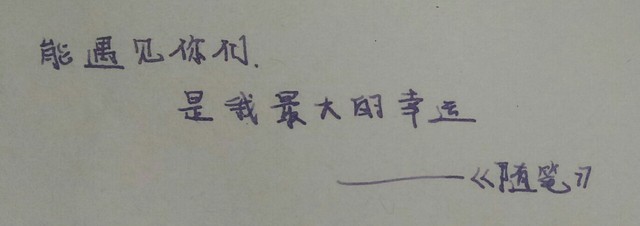 能遇见你们.
是我最大的幸运
——《随笔》